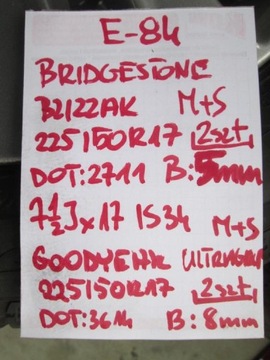 E-84
BRIDGESTONE
BLIZZAK M+S
225/50R17 2szt,
DOT:2711 B:5mm
7½Jx17 IS34
M+S
GOODYEAR ULTRAGRIP
225/50R17 2szt,
DOT:3614 B:8mm